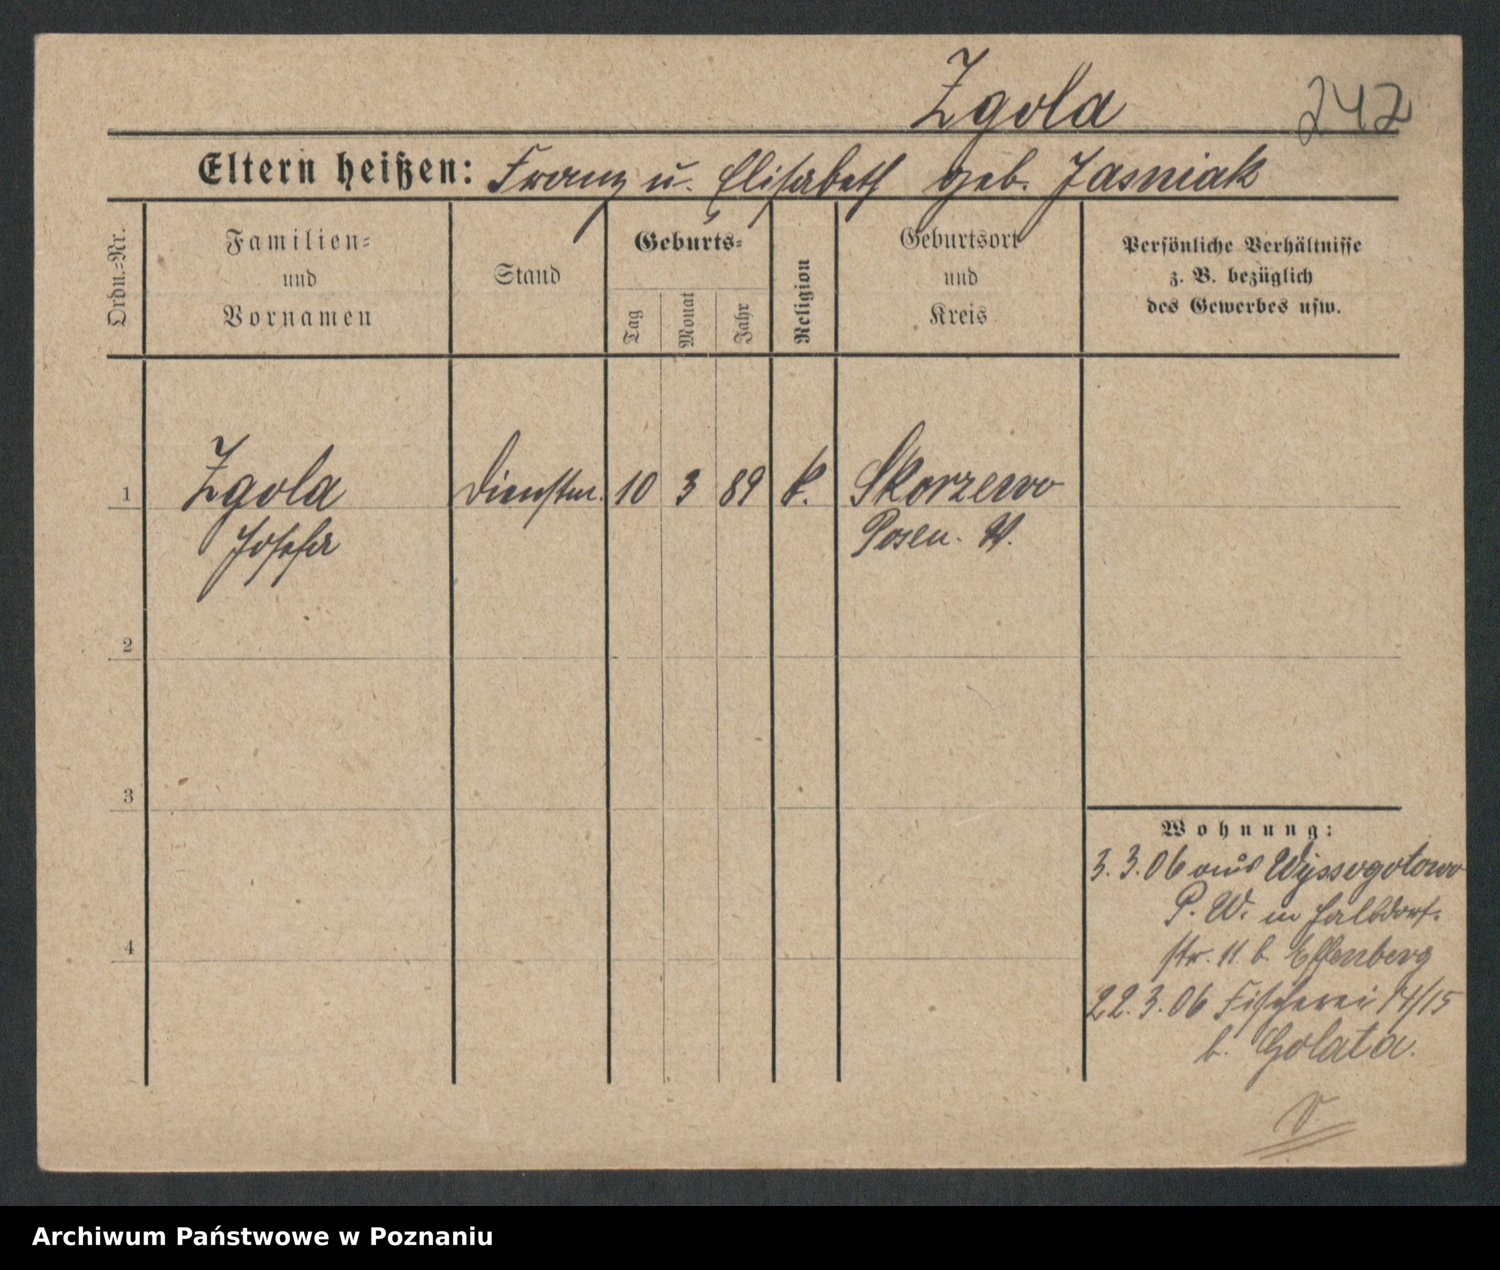 Zgola 242
Eltern heißen: Franz u. Elisabeth geb. Jasniak
Ordn.=Nr.
Familien=
und
Vornamen
Stand
Geburts=
Tag
Monat
Jahr
Religion
Geburtsort
und
Kreis
Persönliche Verhältnisse
z. B. bezüglich
des Gewerbes usw.
1 Zgola Dienstm. 10 3 89 k. Skorzewo
Josefa Posen. W.
2
3
4
Wohnung:
3.3.06 aus Wyssogotowo
P. W. in Halbdorf-
str. 11 b. Effenberg
22.3.06 Fischerei 14/15
b. Golata.
Archiwum Państwowe w Poznaniu